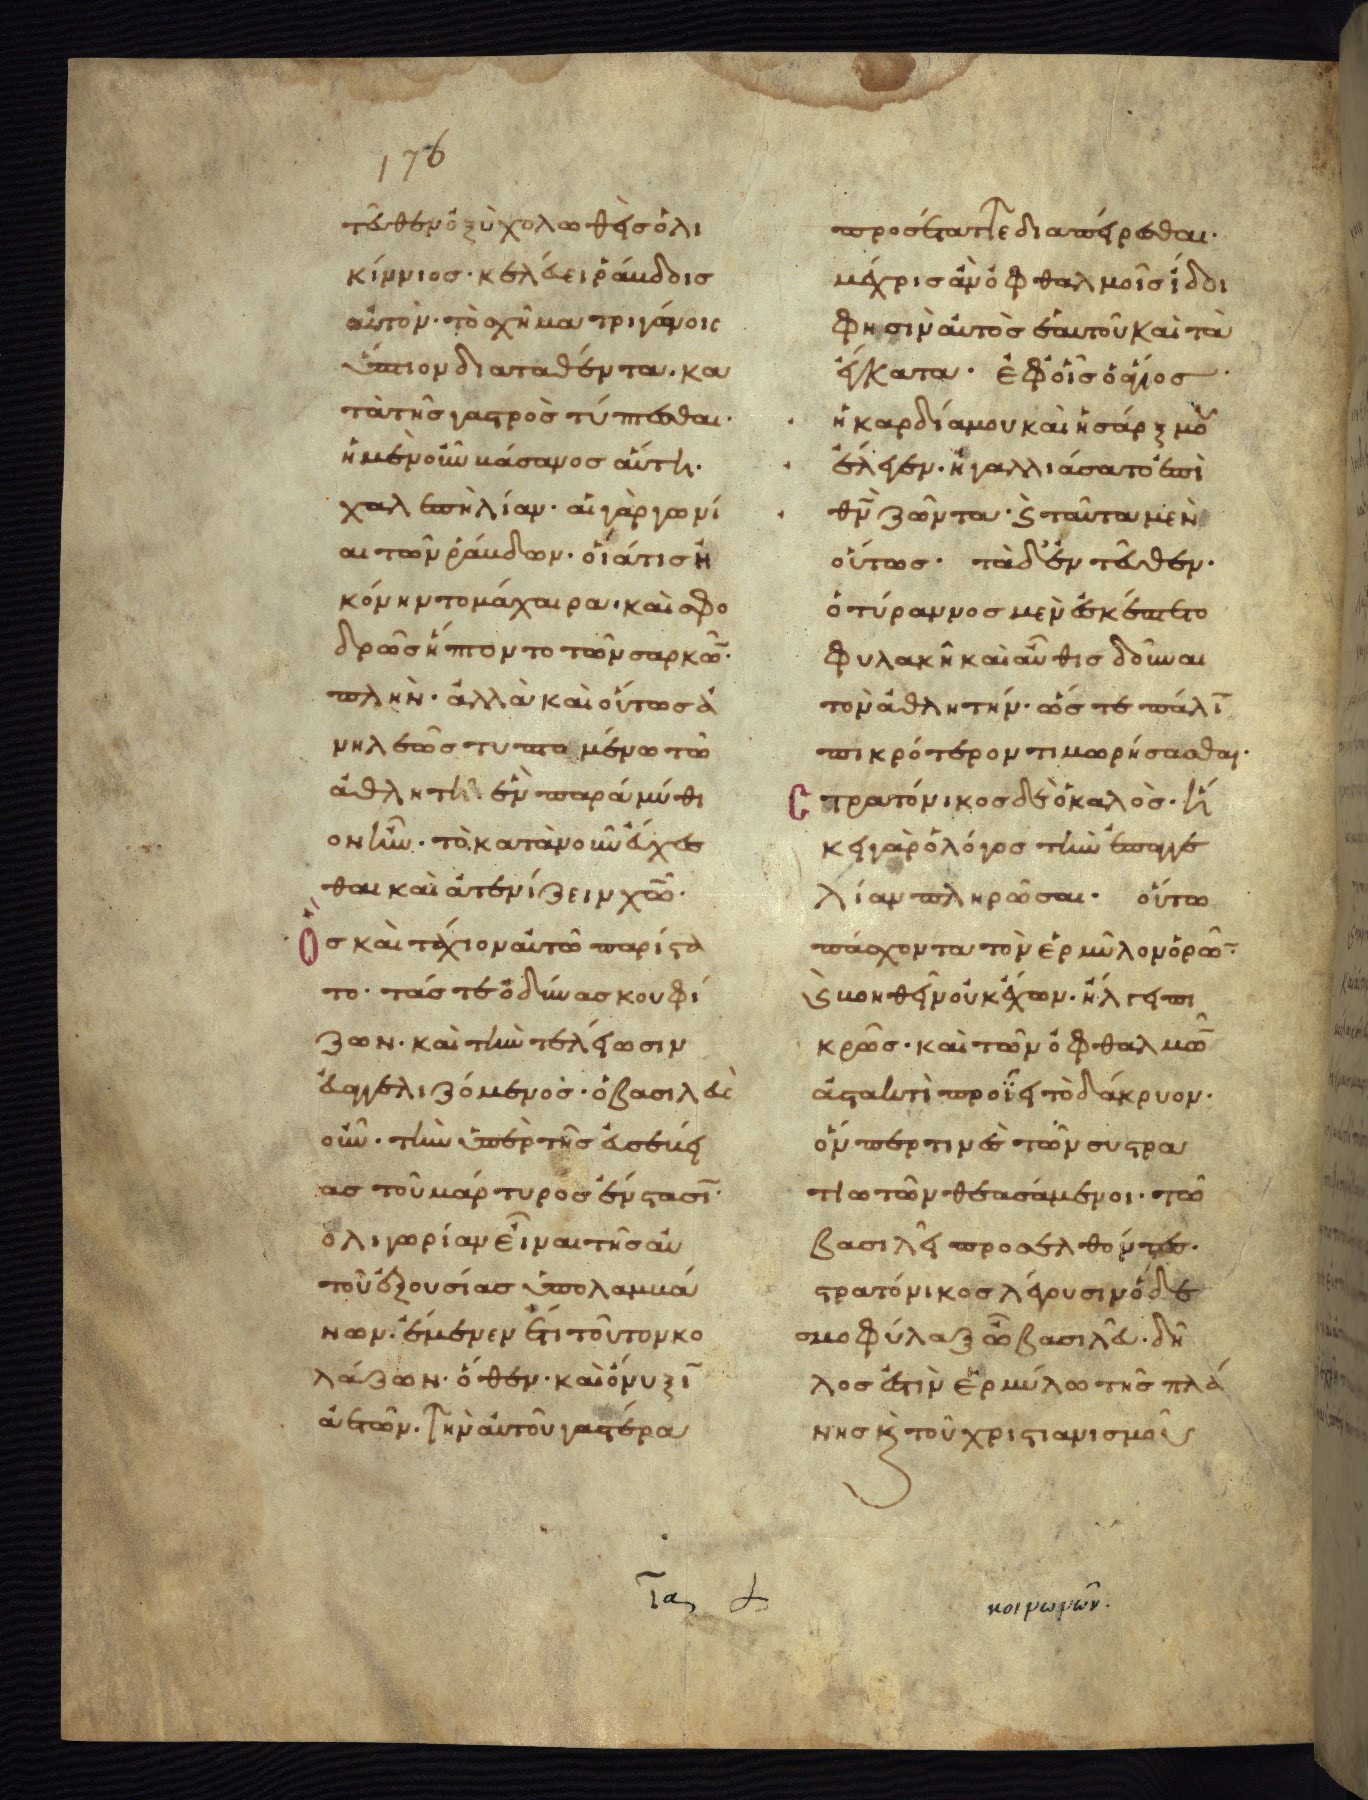 176
τεῦθεν ὀξυχολωθεὶς ὁ λι
κίννιος· κελεύει ῥάβδοις
αὐτὸν· τὸ σχῆμα τριγώνοις
ὕπτιον διαταθέντα· κα
τὰ τῆς γαστρὸς τύπτεσθαι·
ἡ μὲν οὖν βάσανος αὕτη·
χαλεπὴ λίαν· αἱ γὰρ γωνί
αι τῶν ῥάβδων· οἷά τις ἠ
κόνηντο μάχαιρα· καὶ σφο
δρῶς ἥπτοντο τῶν σαρκῶν·
πλὴν· ἀλλὰ καὶ οὕτως ἀ
νηλεῶς τυπτομένω τῶ
ἀθλητῆ· ἓν παραμύθι
ον ἦν· τὸ κατὰ νοῦν ἔχεσ
θαι καὶ ἀτενίζειν χῶ·
Ὃς καὶ τάχιον αὐτῶ παρίστα
το· τάς τε ὀδύνας κουφί
ζων· καὶ τὴν τελείωσιν
εὐαγγελιζόμενος· ὁ βασιλεὺς
οὖν· τὴν ὑπὲρ τῆς εὐσεβεί
ας τοῦ μάρτυρος ἔνστασιν·
ὀλιγωρίαν εἶναι τῆς αὐ
τοῦ ἐξουσίας ὑπολαμβά
νων· ἔμενεν ἔτι τοῦτον κο
λάζων· ὅθεν· καὶ ὄνυξιν
ἀετῶν· τὴν αὐτοῦ γαστέρα
προστάττει διασπείρεσθαι·
μέχρις ἂν ὀφθαλμοῖς ἴδοι
φησὶν αὐτὸς ἑαυτοῦ καὶ τὰ
ἔγκατα· ἐφ οἷς ὁ ἅγιος·
ἡ καρδία μου καὶ ἡ σάρξ μου
ἔλεγεν· ἠγαλλιάσατο ἐπὶ
θν ζῶντα· καὶ ταῦτα μὲν
οὕτως· τὰ δ' ἐντεῦθεν·
ὁ τύραννος μὲν ἐσκέπτετο
φυλακῆ καὶ αὖθις δοῦναι
τὸν ἀθλητήν· ὥστε πάλιν
πικρότερον τιμωρήσασθαι·
Στρατόνικος δὲ ὁ καλὸς· ἥ
κει γὰρ ὁ λόγος τὴν ἐπαγγε
λίαν πληρῶσαι· οὕτω
πάσχοντα τὸν ἑρμύλον ὁρῶν·
καὶ βοηθεῖν οὐκ ἔχων· ἤλγει πι
κρῶς· καὶ τῶν ὀφθαλμῶν
ἀστακτὶ προΐει τὸ δάκρυον·
ὅνπερ τινὲς τῶν συστρα
τιωτῶν θεασάμενοι· τῶ
βασιλεῖ προσελθόντες·
στρατόνικος λέγουσιν ὁ δε
σμοφύλαξ ὦ βασιλεῦ· δῆ
λος ἐστὶν ἑρμύλω τῆς πλά
νης καὶ τοῦ χριστιανισμοῦ
κοινωνῶν.